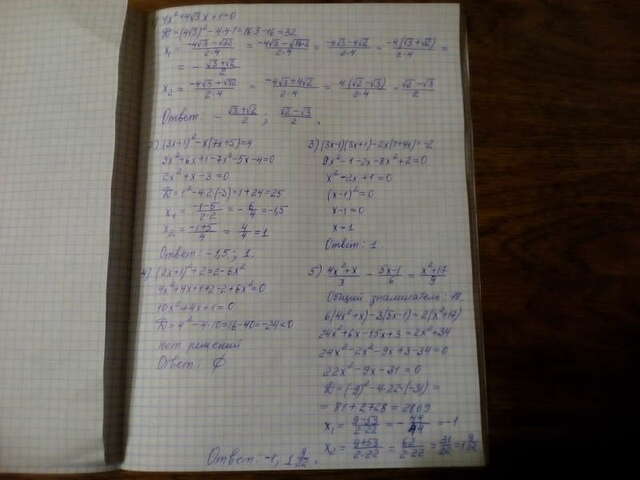 4x²+4√3x+1=0
D=(4√3)²-4·4·1=16·3-16=32
x₁=(-4√3-√32)/(2·4)=(-4√3-√16·2)/(2·4)=(-4√3-4√2)/(2·4)=-4(√3+√2)/(2·4)=
=-(√3+√2)/2
x₂=(-4√3+√32)/(2·4)=(-4√3+4√2)/(2·4)=4(√2-√3)/(2·4)=(√2-√3)/2
Ответ: -(√3+√2)/2; (√2-√3)/2.
2) (3x+1)²-x(7x+5)=4
9x²+6x+1-7x²-5x-4=0
2x²+x-3=0
D=1²-4·2·(-3)=1+24=25
x₁=(-1-5)/(2·2)=-6/4=-1,5
x₂=(-1+5)/4=4/4=1
Ответ: -1,5; 1.
3) (3x-1)(3x+1)-2x(1+4x)=-2
9x²-1-2x-8x²+2=0
x²-2x+1=0
(x-1)²=0
x-1=0
x=1
Ответ: 1
4) (2x+1)²+2=2-6x²
4x²+4x+1+2-2+6x²=0
10x²+4x+1=0
D=4²-4·10=16-40=-24<0
нет решений
Ответ: ∅
5) (4x²+x)/3-(5x-1)/6=(x²+17)/9
Общий знаменатель: 18
6(4x²+x)-3(5x-1)=2(x²+17)
24x²+6x-15x+3=2x²+34
24x²-2x²-9x+3-34=0
22x²-9x-31=0
D=(-9)²-4·22·(-31)=
=81+2728=2809
x₁=(9-53)/(2·22)=-44/44=-1
x₂=(9+53)/(2·22)=62/(2·22)=31/22=1 9/22
Ответ: -1; 1 9/22.